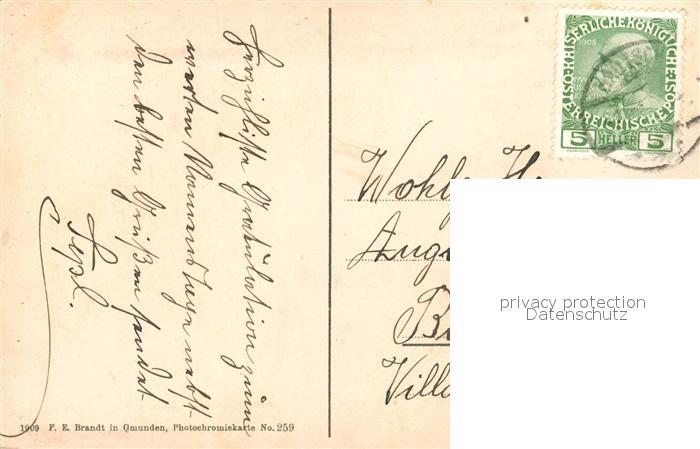 Herzlichste Gratulation zum
werten Namenstage nebst
den besten Grüßen sendet
Sepl.
1909 F. E. Brandt in Gmunden, Photochromiekarte No. 259
KAISERLICHE KÖNIGLICHE
ÖSTERREICHISCHE POST
1908
5 HELLER 5
Wohlg. H
Aug
B
Villa
privacy protection
Datenschutz